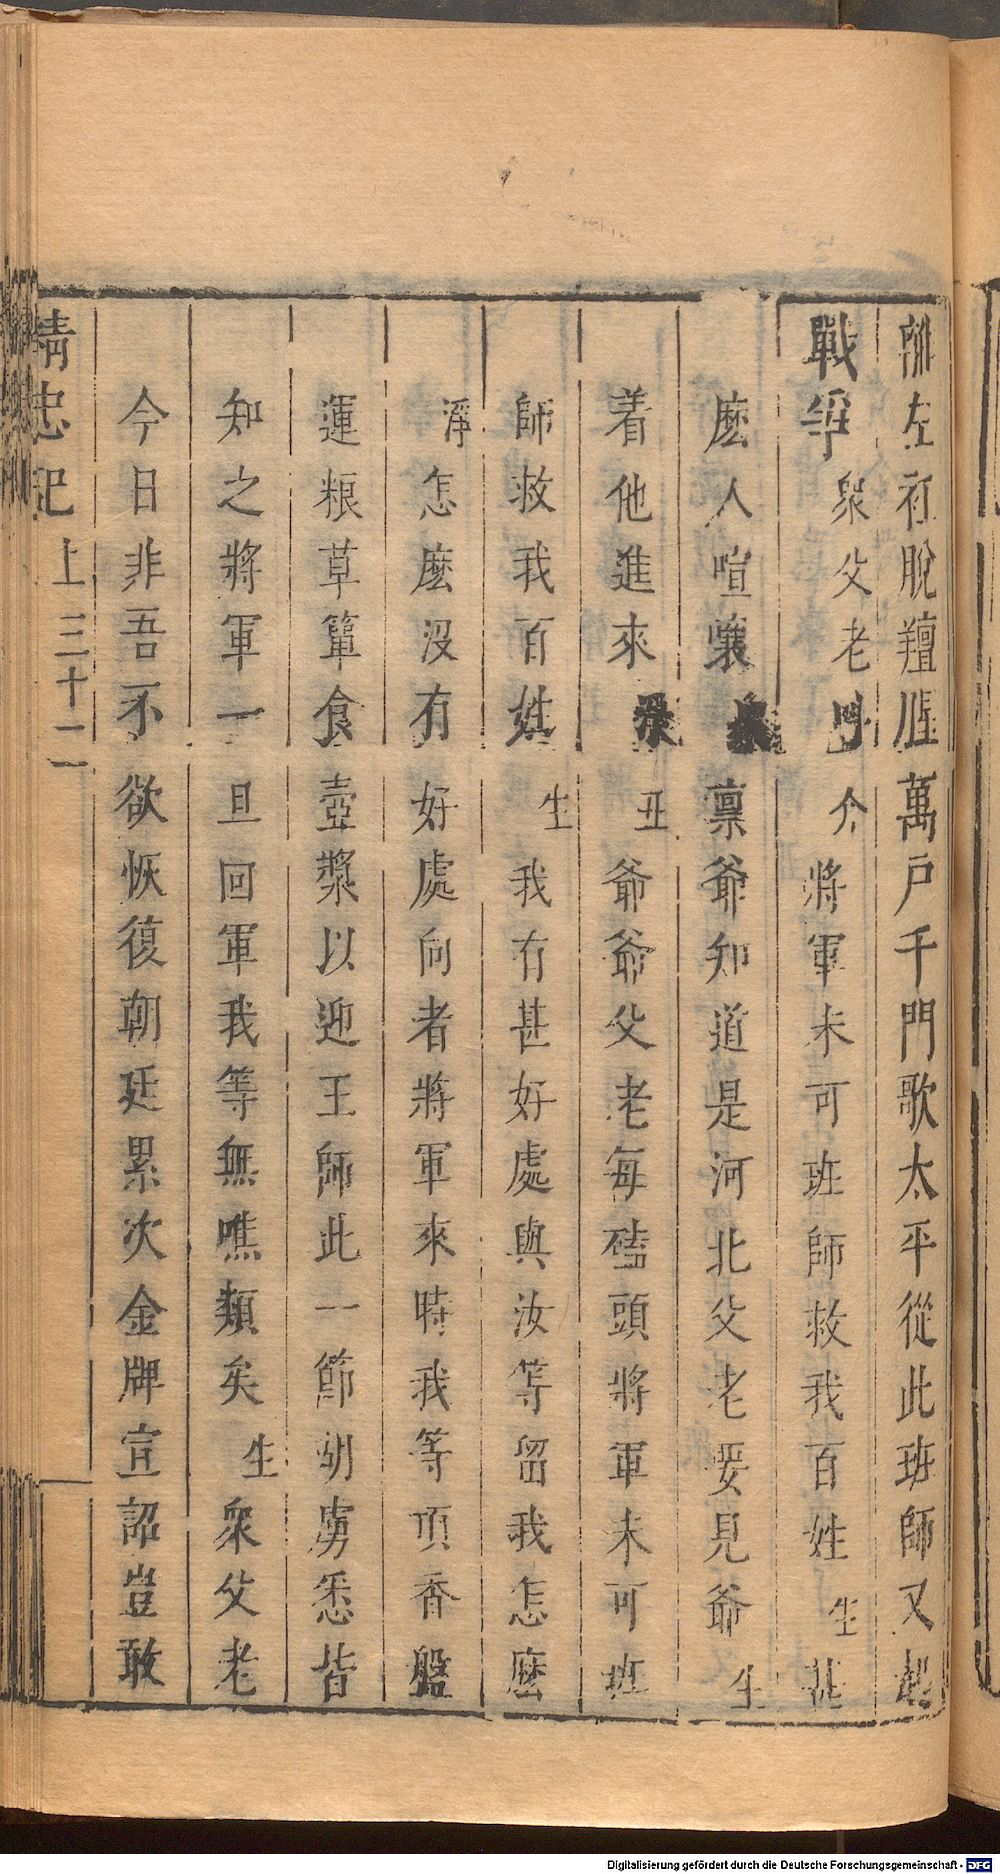 左衽脫羶腥萬戶千門歌太平從此班師又起
戰爭衆父老介將軍未可班師救我百姓生甚
麽人喧嚷衆禀爺知道是河北父老要見爺生
着他進來丑爺爺父老每磕頭將軍未可班
師救我百姓生我有甚好處與汝等留我怎麽
淨怎麽沒有好處向者將軍來時我等頂香盤
運粮草簞食壺漿以迎王師此一節胡虜悉皆
知之將軍一旦回軍我等無噍類矣生衆父老
今日非吾不欲恢復朝廷累次金牌宣詔豈敢
精忠記 上 三十二
Digitalisierung gefördert durch die Deutsche Forschungsgemeinschaft - DFG